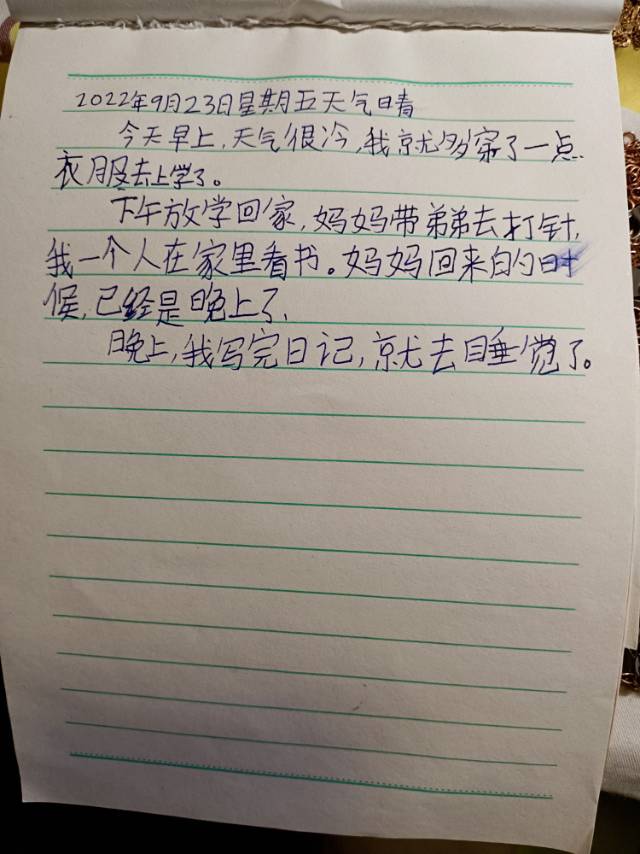 2022年9月23日星期五天气晴
今天早上,天气很冷,我就多穿了一点
衣服去上学了。
下午放学回家,妈妈带弟弟去打针,
我一个人在家里看书。妈妈回来的时
候,已经是晚上了,
晚上,我写完日记,就去睡觉了。